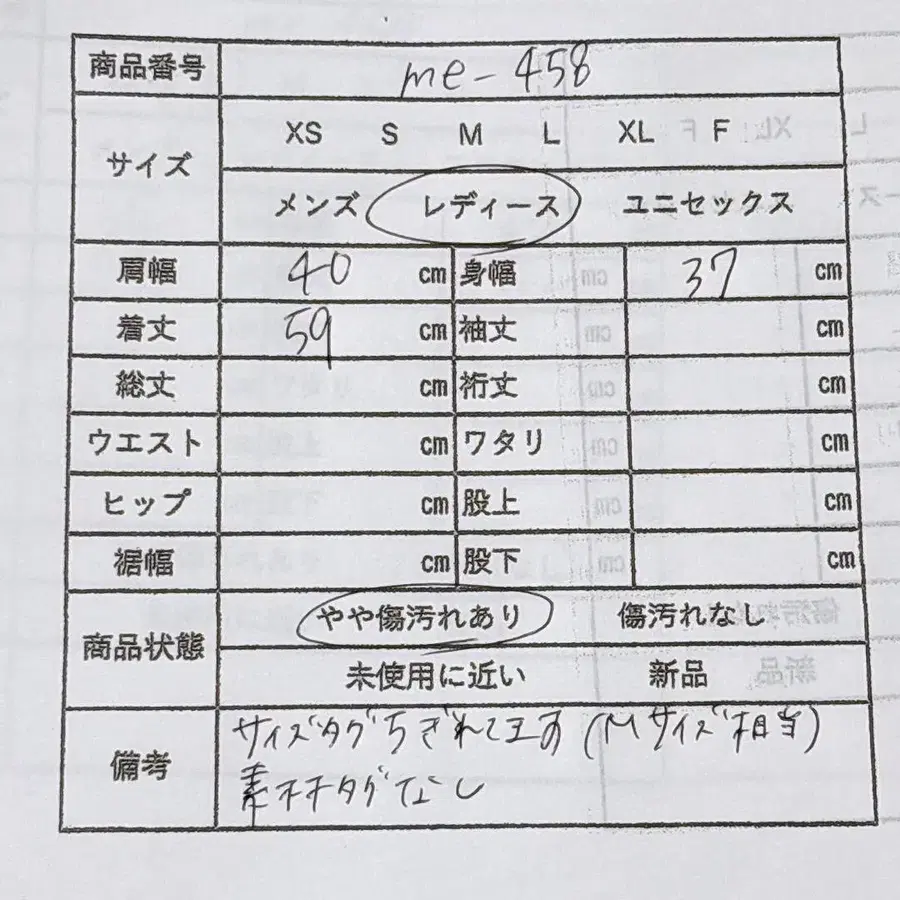 商品番号 me-458
サイズ XS S M L XL F
メンズ レディース ユニセックス
肩幅 40 cm 身幅 37 cm
着丈 59 cm 袖丈 cm
総丈 cm 裄丈 cm
ウエスト cm ワタリ cm
ヒップ cm 股上 cm
裾幅 cm 股下 cm
商品状態 やや傷汚れあり 傷汚れなし
未使用に近い 新品
備考 サイズタグちぎれてます(Mサイズ相当)
素材タグなし